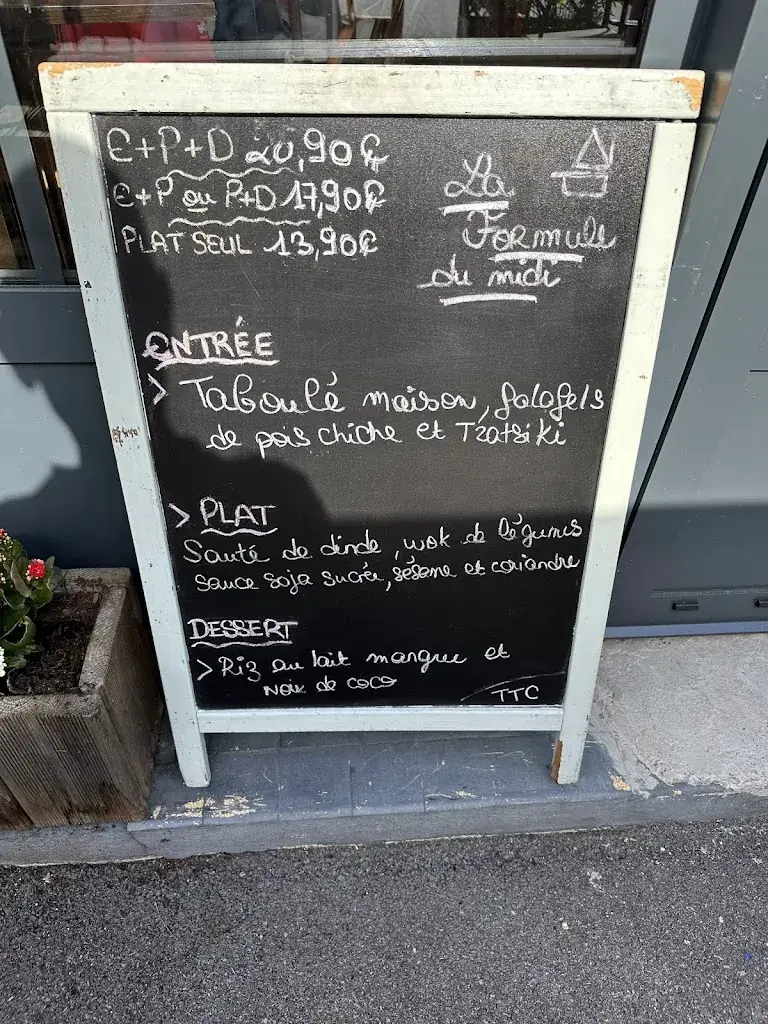 E+P+D 20,90€
E+P ou P+D 17,90€
PLAT SEUL 13,90€
La
Formule
du midi
ENTRÉE
> Taboulé maison, falafels
de pois chiche et Tzatsiki
> PLAT
Sauté de dinde, wok de légumes
sauce soja sucrée, sésame et coriandre
DESSERT
> Riz au lait mangue et
Noix de coco
TTC